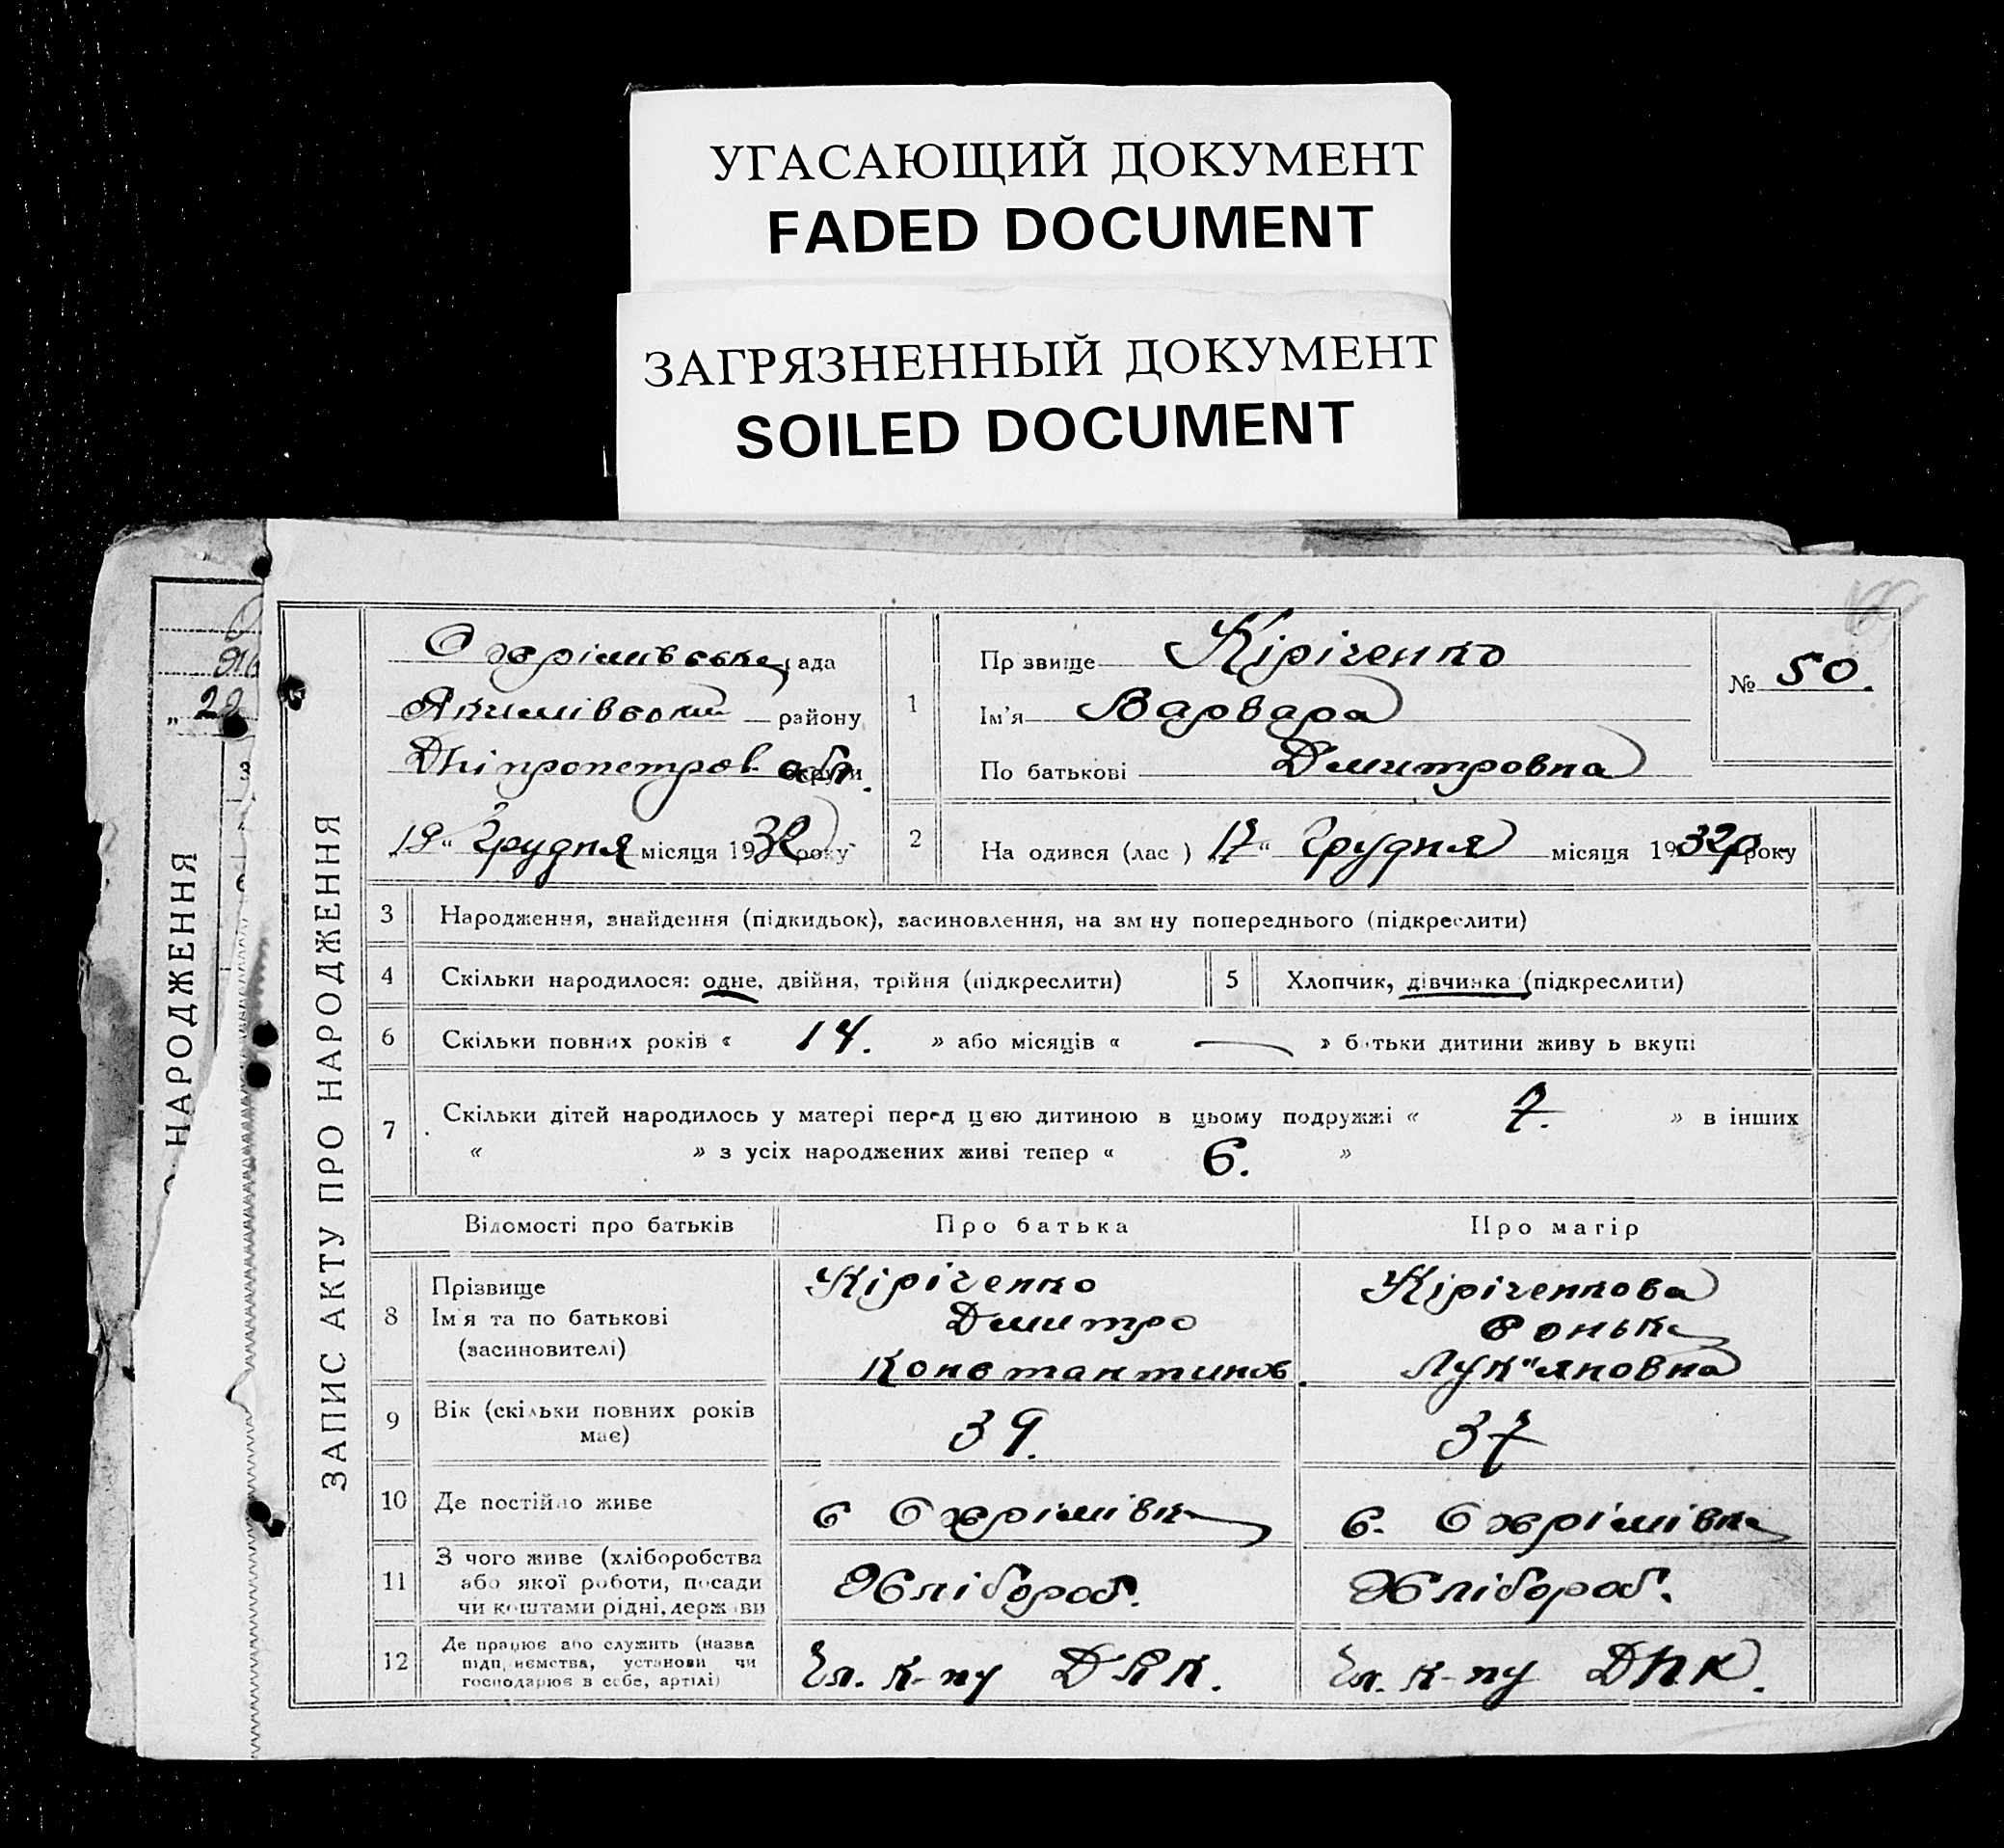 УГАСАЮЩИЙ ДОКУМЕНТ
FADED DOCUMENT
ЗАГРЯЗНЕННЫЙ ДОКУМЕНТ
SOILED DOCUMENT
О НАРОДЖЕННЯ
„ 29
3
ЗАПИС АКТУ ПРО НАРОДЖЕННЯ
Охрімівська рада
Якимівський району
Дніпропетров. обл. округи
„19“ Грудня місяця 1932 року
1
Пр звище Кіріченко
№ 50.
Ім'я Варвара
По батькові Дмитровна
2
На одився (лас ) 17“ Грудня місяця 1932р. року
3 Народження, знайдення (підкидьок), засиновлення, на зм ну попереднього (підкреслити)
4 Скільки народилося: одне, двійня, трійня (підкреслити)
5 Хлопчик, дівчинка (підкреслити)
6 Скільки повних років « 14. » або місяців « — » б тьки дитини живу ь вкупі
7 Скільки дітей народилось у матері перед цією дитиною в цьому подружжі « 7. » в інших
« » з усіх народжених живі тепер « 6. »
Відомості про батьків Про батька Про матір
8 Прізвище Кіріченко Кіріченкова
Ім'я та по батькові Дмитро
(засиновителі) Константинов. Лук"яновна
9 Вік (скільки повних років має) 39. 37
10 Де постійно живе с Охрімівка с. Охрімівка
11 З чого живе (хліборобства
або якої роботи, посади Хлібороб. Хлібороб.
чи коштами рідні, держ ви
12 Де працює або служить (назва
підп иємства, установи чи Чл. к-пу ДПК. Чл. к-пу ДПК.
господарює в себе, артілі)